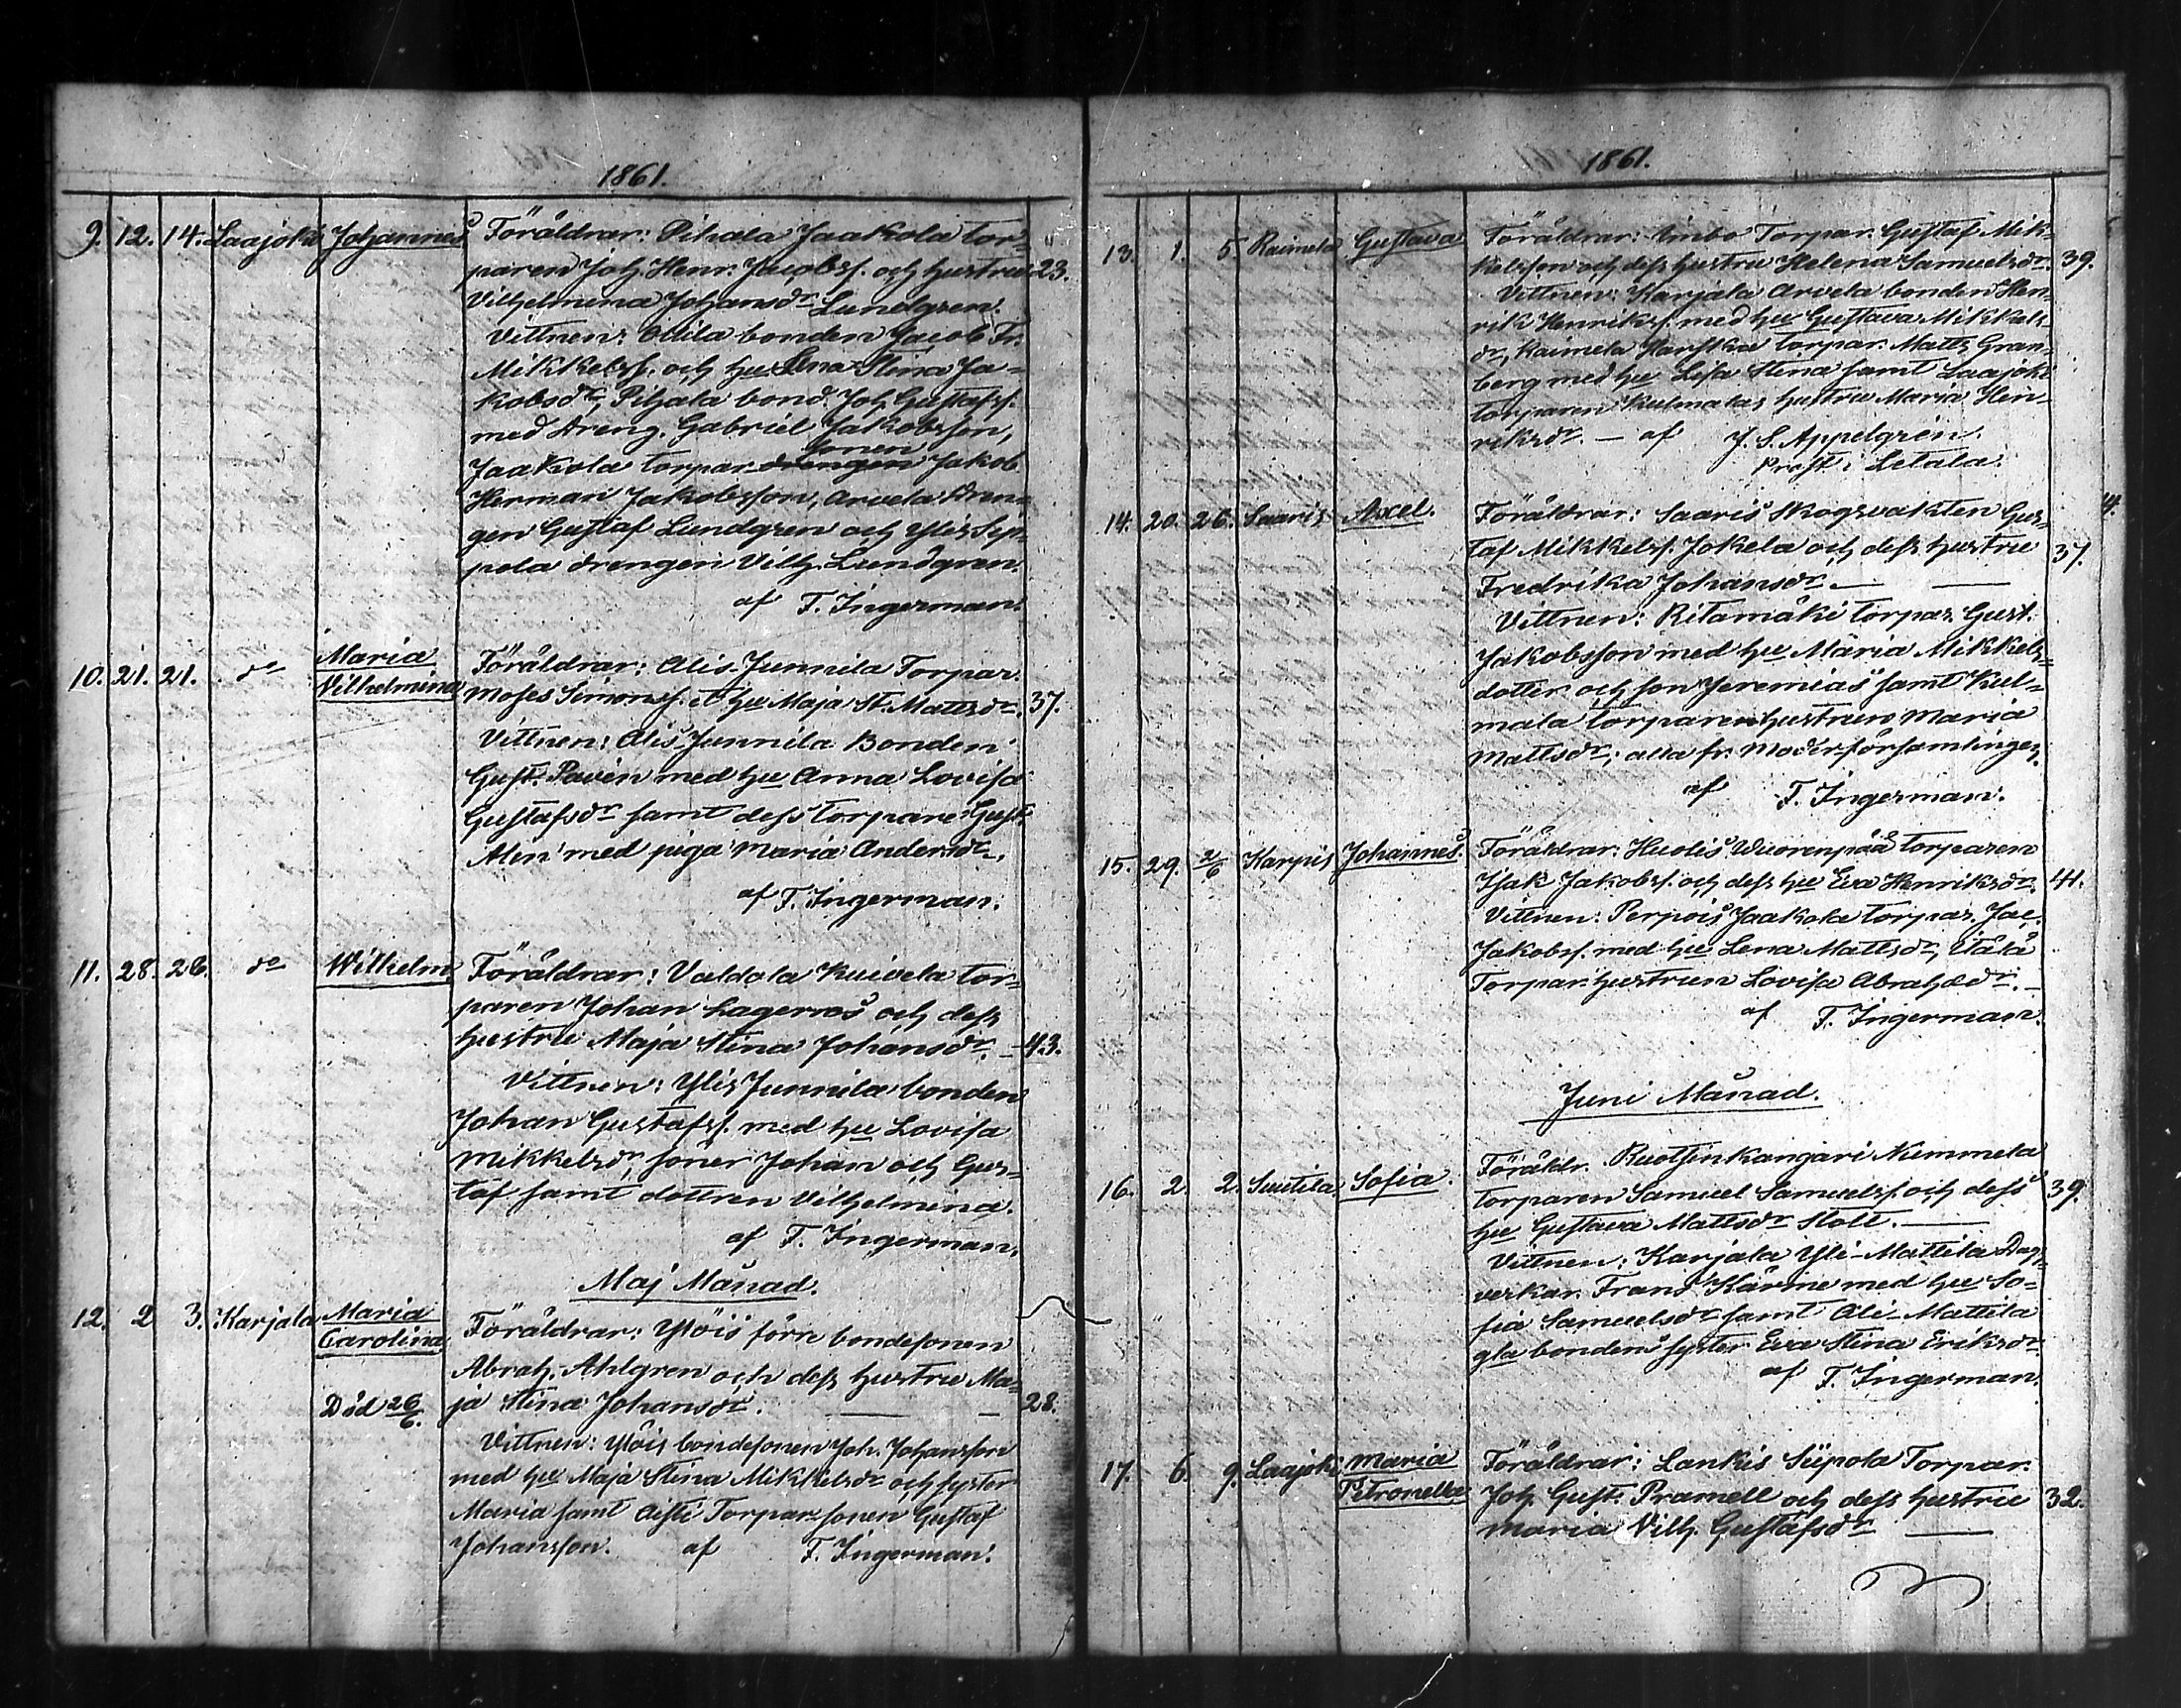 1861.
9. 12. 14. Laajoki Johannes Föräldrar: Pihala Jaakola tor=
paren Joh. Henr. Jacobss. och hustru 23.
Vilhelmina Johansdr Lundgren.
Vittnen: Otila bonden Jacob Fr.
Mikkelss. och hu Lena Stina Ja=
kobsdr, Pihala bond. Joh Gustafss.
med dreng. Gabriel Jakobsson,
sonen
Jaakola torpar drengen Jakob
Herman Jakobsson, Arvela dren=
gen Gustaf Lundgren och Ylis Sep=
pola drengen Vilh. Lundgren.
af F. Ingerman.
10. 21. 21. do Maria
Vilhelmina
Föräldrar: Alis Junnila Torpar.
Moses Simonss. & hu Maja St. Mattsdr. 37.
Vittnen: Alis Junnila Bonden
Gust. Pavén med hu Anna Lovisa
Gustafsdr samt dess torpare Gust.
Alin med piga Maria Andersdr.
af F. Ingerman.
11. 28. 28. do Wilhelm Föräldrar: Valdola Kuivela tor=
paren Johan Lagerros och dess
hustru Maja Stina Johansdr. 43.
Vittnen: Ylis Junnila bonden
Johan Gustafss. med hu Lovisa
Mikkelsdr, söner Johan och Gus=
taf samt dottren Vilhelmina.
af F. Ingerman.
Maj Månad.
12. 2 3. Karjala Maria
Carolina
Död 26/6.
Föräldrar: Ylöis förre bondesonen
Abrah. Ahlgren och dess hustru Ma=
ja Stina Johansdr. 28.
Vittnen: Ylöis bondesonen Joh. Johansson
med hu Maja Stina Mikkelsdr och syster
Maria samt Aisti Torpar sonen Gustaf
Johansson. af F. Ingerman.
1861.
13. 1. 5. Raimela Gustava Föräldrar: Torpar. Gustaf Mik=
kelsson och dess hustru Helena Samuelsdr. 39.
Vittnen: Karjala Arvela bonden Hen=
rik Henrikss. med hu Gustava Mikkels=
dr, Raimela torpar. Matts Gran=
berg med hu Lisa Stina samt Laajoki
torparen Kulmalas hustru Maria Hen=
riksdr. – af J. S. Appelgrén.
Prost i Letala.
14. 20. 26. Saaris Axel. Föräldrar: Saaris Skogsvakten Gus=
taf Mikkelss. Jokela och dess hustru 37.
Fredrika Johansdr. –
Vittnen: Ritamäki torpar. Gust.
Jakobsson med hu Maria Mikkels=
dotter och son Jeremias samt Kul=
mala torparen hustrun Maria
Mattsdr; alla fr. Moderförsamlingen
af F. Ingerman.
15. 29. 2/6 Karpis Johannes. Föräldrar: Huolis Wuorenpää torparen
Isak Jakobs. och dess hu Eva Henriksdr. 41.
Vittnen: Perpöis Jaakola torpar. Jac.
Jakobss. med hu Lena Mattsdr, Ütälä
Torpar hustrun Lovisa Abrah.dr. –
af F. Ingerman.
Juni Månad.
16. 2. 2. Suutila. Sofia. Föräldr. Ruotsinkangari Nummela
torparen Samuel Samuelss. och dess 39.
hu Gustava Mattsdr Stolt. –
Vittnen: Karjala Yli-Mattila Dags=
verkar. Frans Kärme med hu So=
fia Samuelsdr samt Ali-Mattila
gla bondens syster Eva Stina Eriksdr.
af F. Ingerman.
17. 6. 9. Laajoki Maria
Petronella
Föräldrar: Lankis Siipola Torpar.
Joh. Gust. Pramell och dess hustru 32.
Maria Vilh. Gustafsdr –